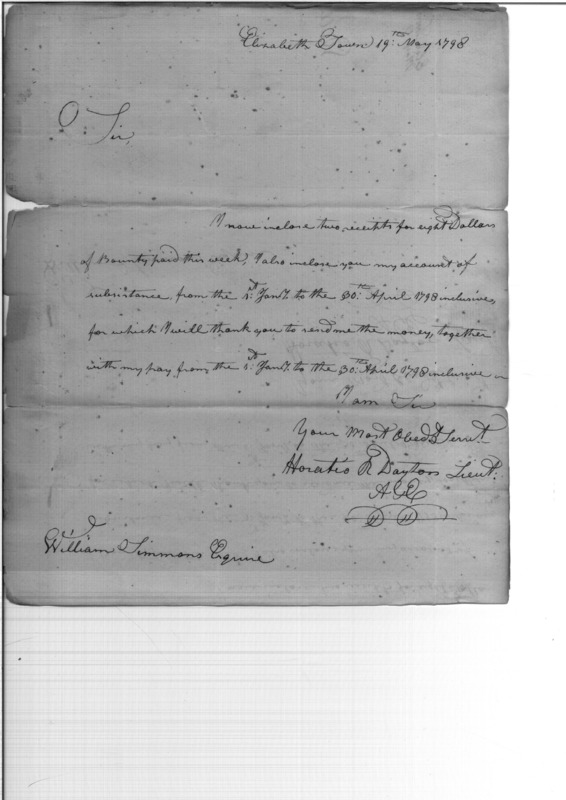 Elizabeth Town 19th May 1798
Sir,
I now inclose two receipts for eight Dollars
of Bounty paid this week, I also inclose you my account of
subsistance, from the 1st Jany. to the 30th April 1798 inclusive,
for which I will thank you to send me the money, together
with my pay from the 1st Jany. to the 30th April 1798 inclusive
I am Sir
Your Most Obedt Servt.
Horatio R Dayton Lieut.
William Simmons Esquire